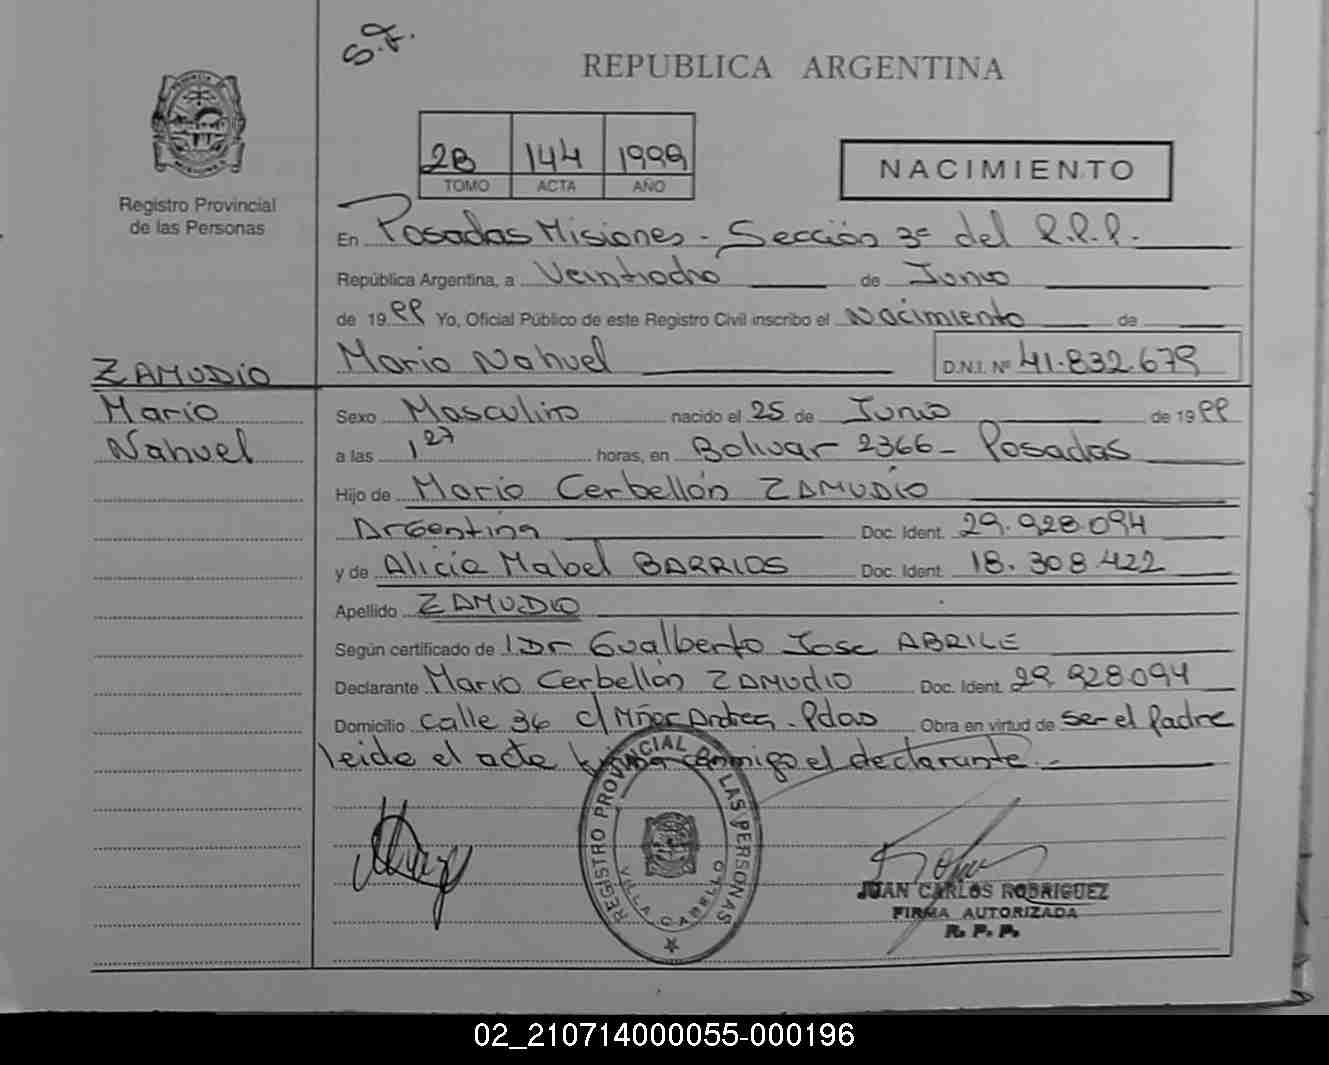 S.F.
REPUBLICA ARGENTINA
2B 144 1999
TOMO ACTA AÑO
NACIMIENTO
Registro Provincial
de las Personas
En Posadas Misiones - Sección 3ª del R.P.P.
República Argentina, a Veintiocho de Junio
de 1999 Yo, Oficial Público de este Registro Civil inscribo el Nacimiento de
Mario Nahuel D.N.I. Nº 41.832.679
ZAMUDIO
Mario
Nahuel
Sexo Masculino nacido el 25 de Junio de 1999
a las 1 27 horas, en Bolivar 2366 - Posadas
Hijo de Mario Cerbellón ZAMUDIO
Argentina Doc. Ident. 29.928.094
y de Alicia Mabel BARRIOS Doc. Ident. 18.308.422
Apellido ZAMUDIO
Según certificado de Dr Gualberto Jose ABRILE
Declarante Mario Cerbellón ZAMUDIO Doc. Ident. 29.928.094
Domicilio calle 36 c/ Mñor Andrea - Pdas Obra en virtud de ser el Padre
leida el acta firma conmigo el declarante.-
REGISTRO PROVINCIAL DE LAS PERSONAS
VILLA CABELLO
JUAN CARLOS RODRIGUEZ
FIRMA AUTORIZADA
R. P. P.
02_210714000055-000196